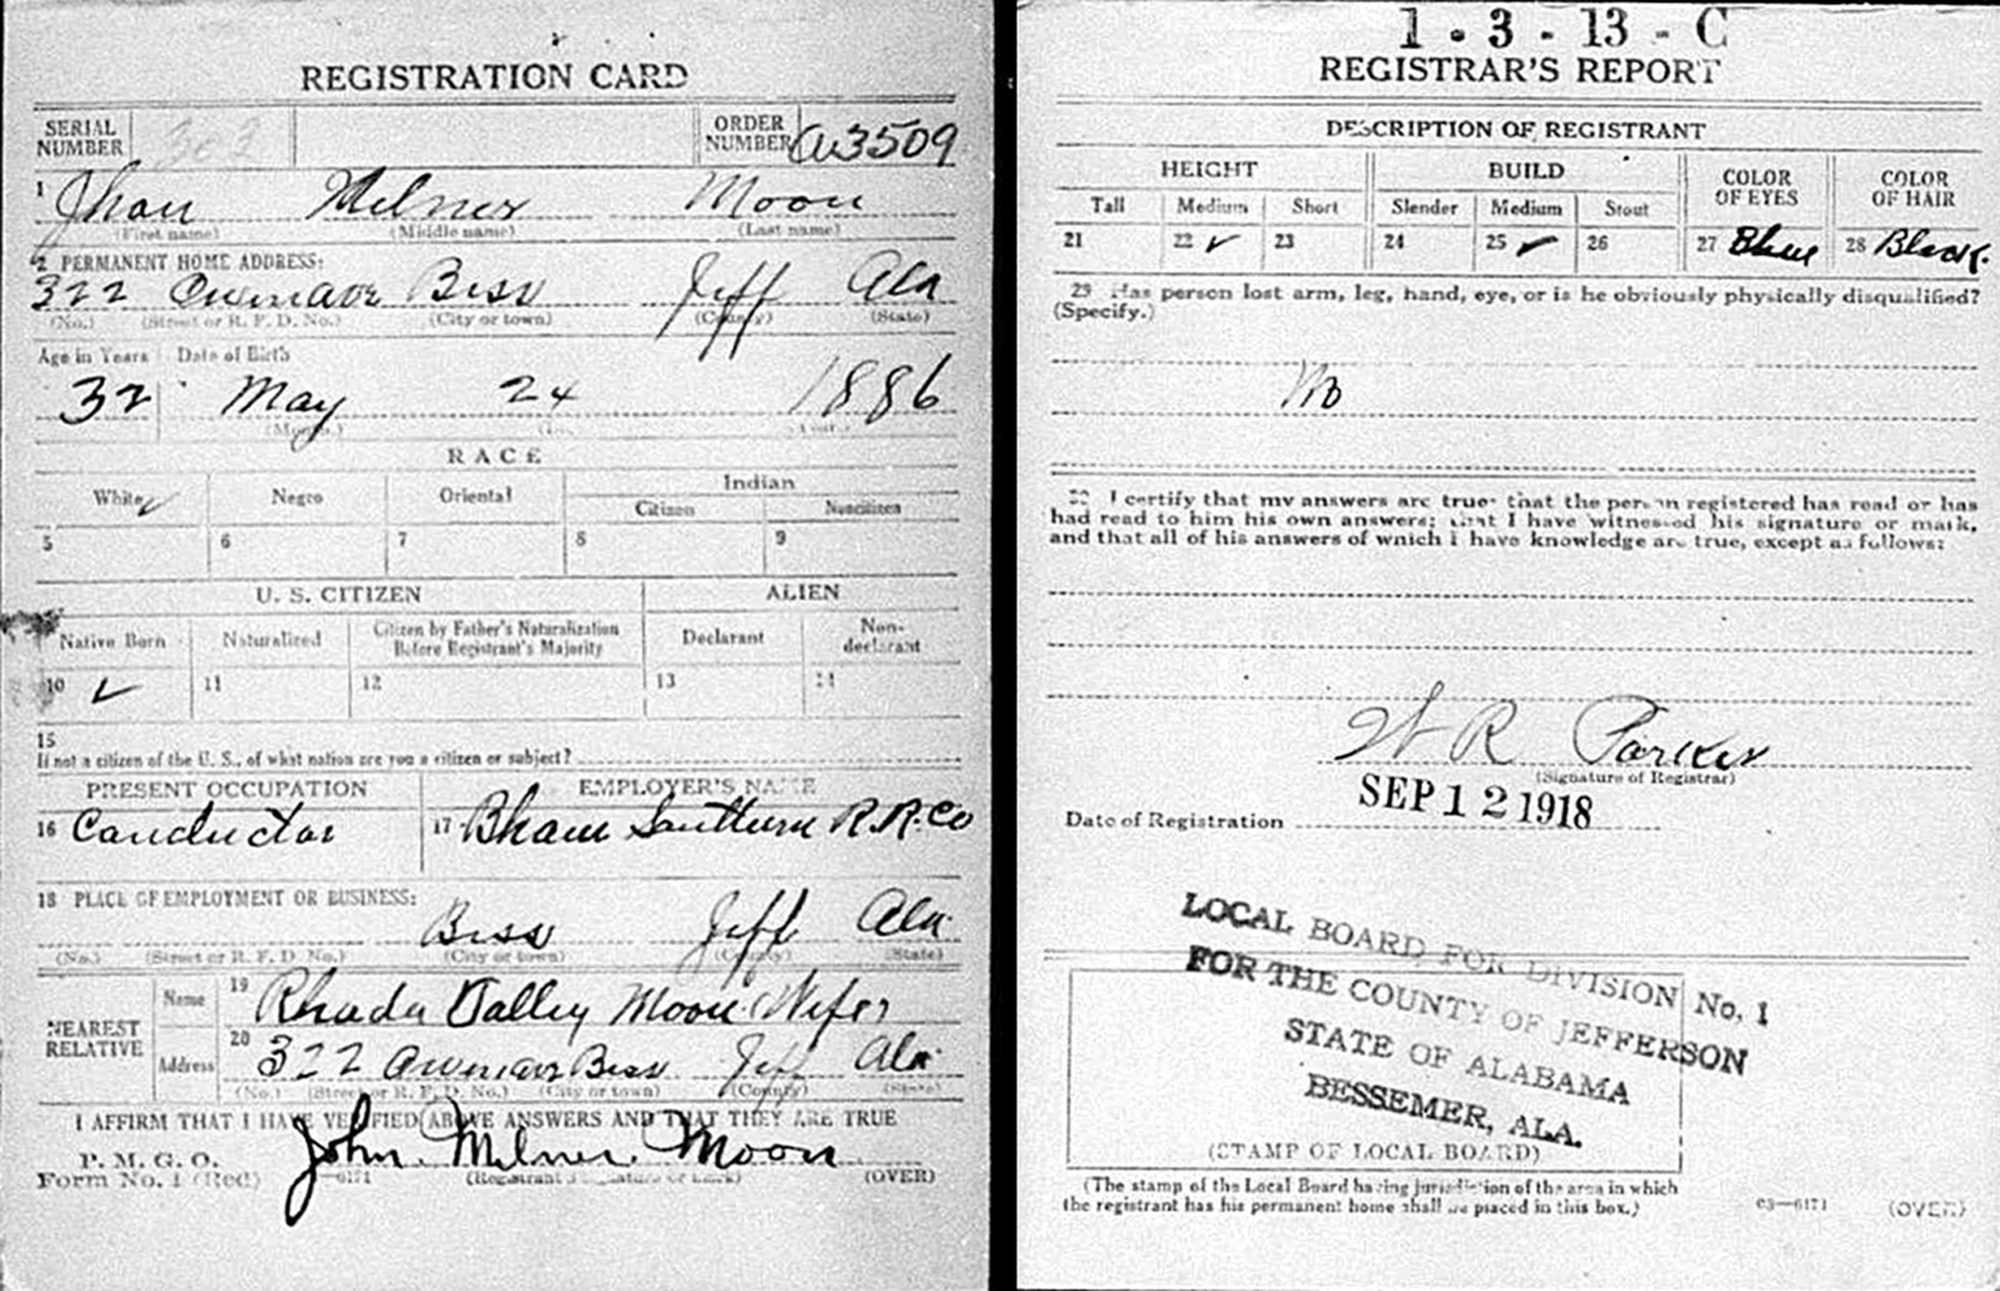 REGISTRATION CARD
SERIAL NUMBER
ORDER NUMBER A3509
1 Jhon Milner Moon
(First name) (Middle name) (Last name)
2 PERMANENT HOME ADDRESS:
322 Bess Jeff Ala
(No.) (Street or R. F. D. No.) (City or town) (County) (State)
Age in Years Date of Birth
32 May 24 1886
(Month.)
RACE
White ✓ Negro Oriental Indian
Citizen Noncitizen
5 6 7 8 9
U. S. CITIZEN ALIEN
Native Born Naturalized Citizen by Father's Naturalization Before Registrant's Majority Declarant Non-declarant
10 ✓ 11 12 13 14
15
If not a citizen of the U. S., of what nation are you a citizen or subject?
PRESENT OCCUPATION EMPLOYER'S NAME
16 Conductor 17 Bham Southern R.R. Co
18 PLACE OF EMPLOYMENT OR BUSINESS:
Bess Jeff Ala.
(No.) (Street or R. F. D. No.) (City or town) (County) (State)
NEAREST RELATIVE
Name 19 Rhoda Talley Moon (Wife)
Address 20 322 Bess Jeff Ala.
(No.) (Street or R. F. D. No.) (City or town) (County) (State)
I AFFIRM THAT I HAVE VERIFIED ABOVE ANSWERS AND THAT THEY ARE TRUE
P. M. G. O.
Form No. 1 (Red) John Milner Moon
(Registrant's signature or mark) (OVER)
1-3-13-C
REGISTRAR'S REPORT
DESCRIPTION OF REGISTRANT
HEIGHT BUILD COLOR OF EYES COLOR OF HAIR
Tall Medium Short Slender Medium Stout
21 22 ✓ 23 24 25 ✓ 26 27 Blue 28 Black.
29 Has person lost arm, leg, hand, eye, or is he obviously physically disqualified?
(Specify.)
No
30 I certify that my answers are true; that the person registered has read or has
had read to him his own answers; that I have witnessed his signature or mark,
and that all of his answers of which I have knowledge are true, except as follows:
W R Parker
(Signature of Registrar)
Date of Registration SEP 12 1918
LOCAL BOARD FOR DIVISION No. 1
FOR THE COUNTY OF JEFFERSON
STATE OF ALABAMA
BESSEMER, ALA.
(STAMP OF LOCAL BOARD)
(The stamp of the Local Board having jurisdiction of the area in which
the registrant has his permanent home shall be placed in this box.)
03—6171 (OVER)